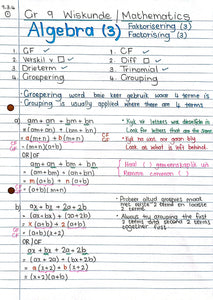 Gr 9 Wiskunde / Mathematics
Algebra (3) Faktorisering (3)
Factorising (3)
1. GF ✓ 1. CF ✓
2. Verskil v □ ✓ 2. Diff □ ✓
3. Drieterm ✓ 3. Trinomial ✓
4. Groepering 4. Grouping
• Groepering word baie keer gebruik waar 4 terme is
• Grouping is usually applied where there are 4 terms
a) am + an + bm + bn
= (am + an) + (bm + bn)
= a(m+n) + b(m+n)
= (m+n)(a+b)
• Kyk vir letters wat dieselfde is
Look for letters that are the same
• Kyk na wat oor bly
Look at what is left behind.
OR | OF
am + an + bm + bn
= (am + bm) + (an + bn)
= m(a+b) + n(a+b)
= (a+b)(m+n)
Haal ( ) gemeenskaplik uit
Remove common ( )
b) ax + bx + 2a + 2b
= (ax + bx) + (2a + 2b)
= x(a+b) + 2(a+b)
= (a+b)(x+2)
• Probeer altyd groepeer
met eerste 2 terme en laaste
2 terme
• Always try grouping the first
2 terms and second 2 terms
together first
OR | OF
ax + bx + 2a + 2b
= (ax + 2a) + (bx + 2b)
= a(x+2) + b(x+2)
= (x+2)(a+b)